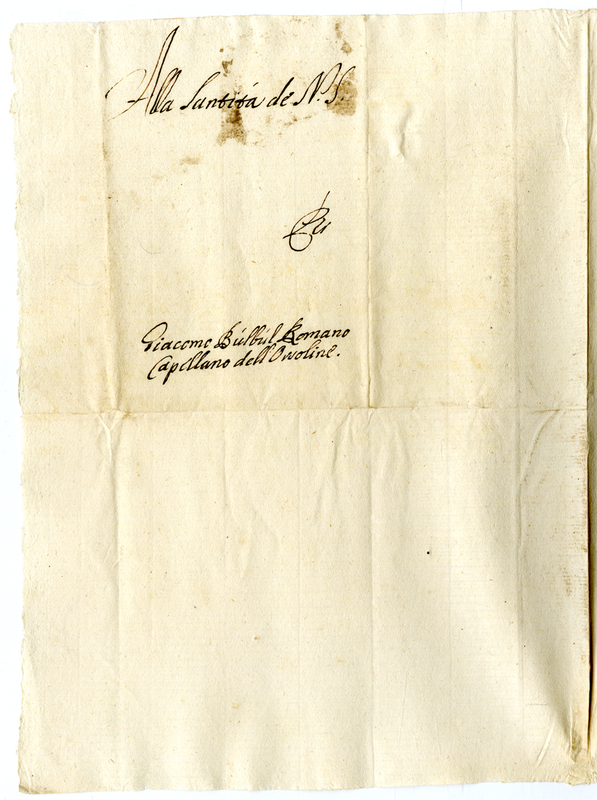 Alla Santitá de N. S.
Per
Giacomo Búlbúl Romano
Capellano dell'Orsoline.